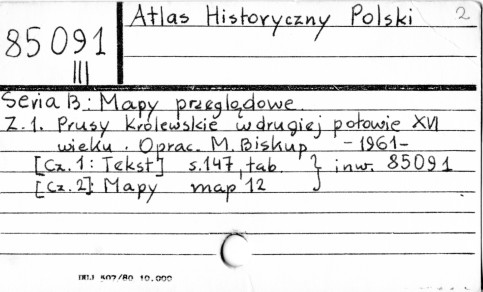 Atlas Historyczny Polski 2
85091
III
Seria B: Mapy przeglądowe.
Z.1. Prusy Królewskie w drugiej połowie XVI
wieku. Oprac. M. Biskup -1961-
[Cz.1: Tekst] s.147, tab. } inw. 85091
[Cz.2]: Mapy map 12
507/80 10.000